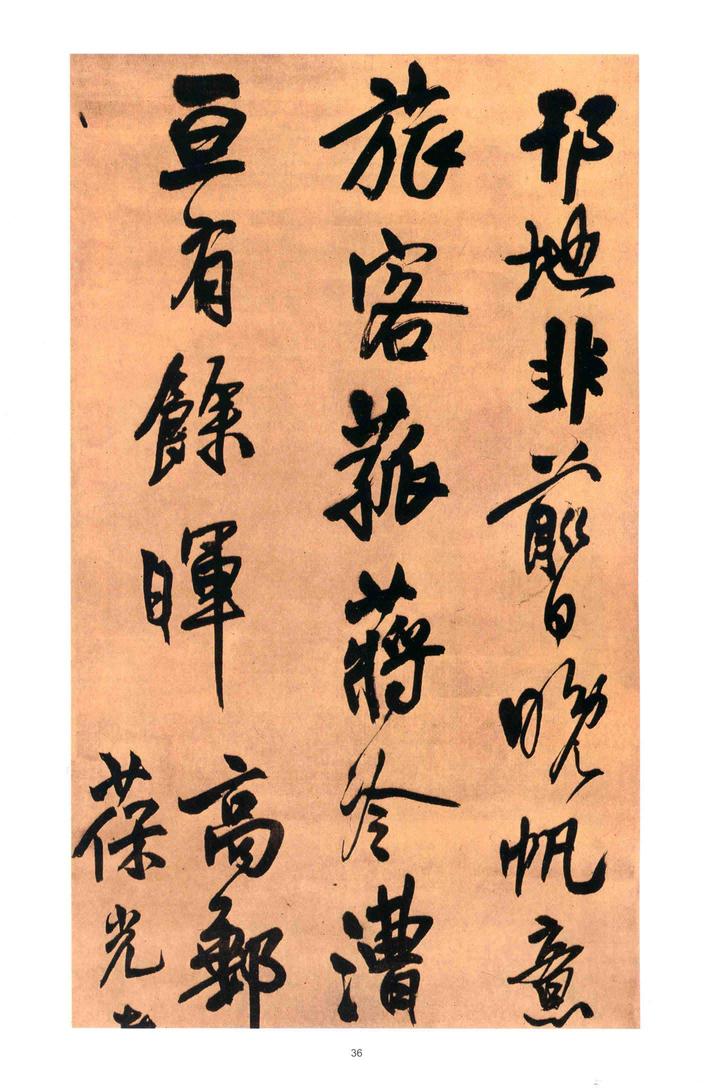 邗地非前日晚帆意
旅客菰蔣冷漕
亘有餘暉
高郵
葆光
36